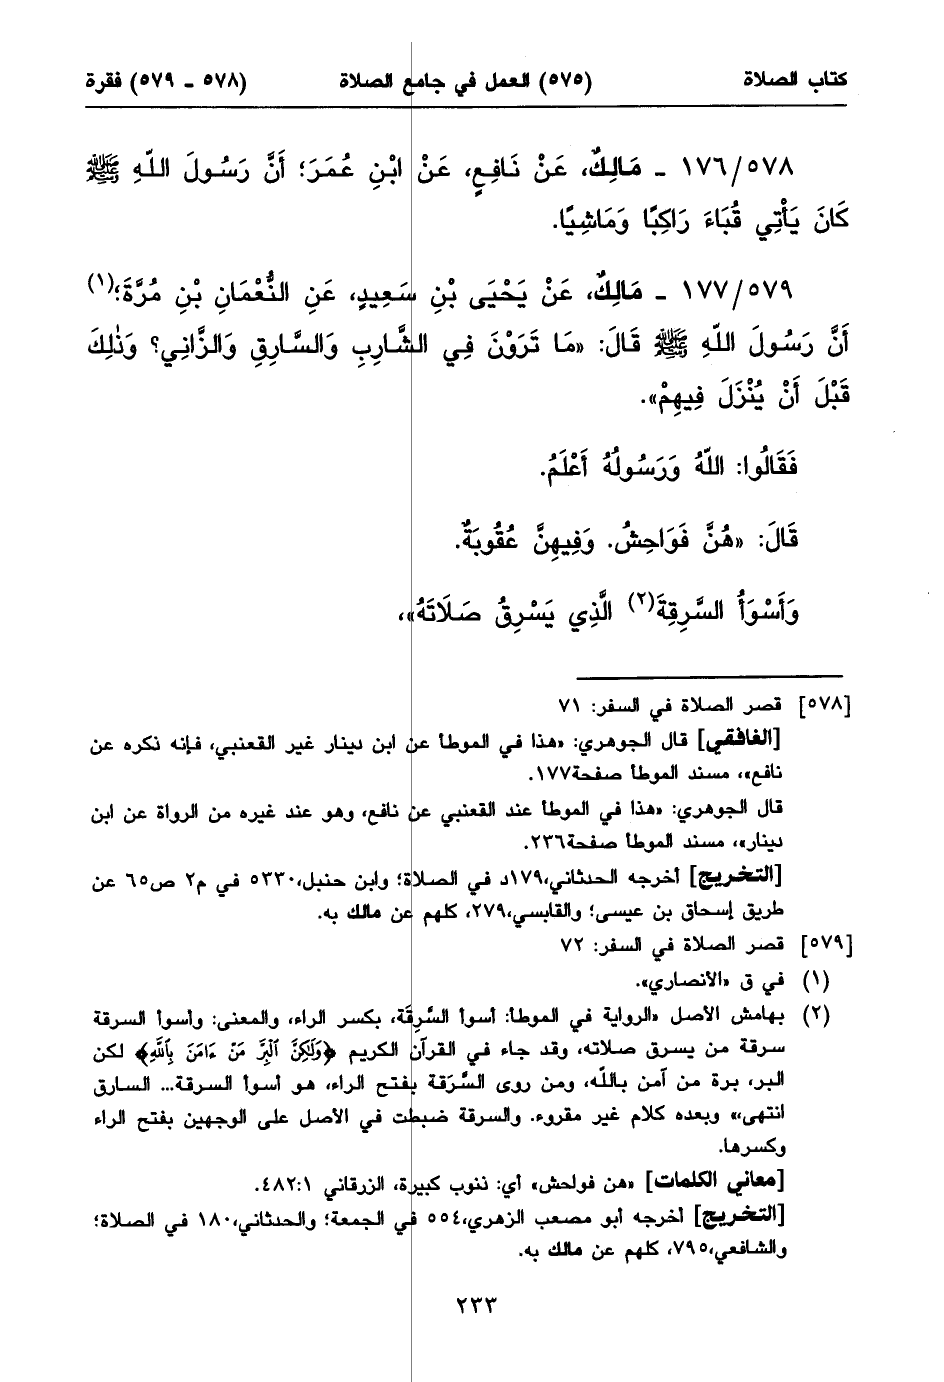 كتاب الصلاة (٥٧٥) العمل في جامع الصلاة (٥٧٨ ـ ٥٧٩) فقرة
١٧٦/٥٧٨ ـ مَالِكٌ، عَنْ نَافِعٍ، عَنْ ابْنِ عُمَرَ؛ أَنَّ رَسُولَ اللّهِ ﷺ
كَانَ يَأْتِي قُبَاءَ رَاكِبًا وَمَاشِيًا.
١٧٧/٥٧٩ ـ مَالِكٌ، عَنْ يَحْيَى بْنِ سَعِيدٍ، عَنِ النُّعْمَانِ بْنِ مُرَّةَ؛(١)
أَنَّ رَسُولَ اللّهِ ﷺ قَالَ: «مَا تَرَوْنَ فِي الشَّارِبِ وَالسَّارِقِ وَالزَّانِي؟ وَذٰلِكَ
قَبْلَ أَنْ يُنْزَلَ فِيهِمْ».
فَقَالُوا: اللّهُ وَرَسُولُهُ أَعْلَمُ.
قَالَ: «هُنَّ فَوَاحِشُ. وَفِيهِنَّ عُقُوبَةٌ.
وَأَسْوَأُ السَّرِقِةَ(٢) الَّذِي يَسْرِقُ صَلَاتَهُ»،
[٥٧٨] قصر الصلاة في السفر: ٧١
[الغافقي] قال الجوهري: «هذا في الموطأ عن ابن دينار غير القعنبي، فإنه نكره عن
نافع»، مسند الموطأ صفحة١٧٧.
قال الجوهري: «هذا في الموطأ عند القعنبي عن نافع، وهو عند غيره من الرواة عن ابن
دينار»، مسند الموطأ صفحة٢٣٦.
[التخريج] أخرجه الحدثاني،١٧٩د في الصلاة؛ وابن حنبل،٥٣٣٠ في م٢ ص٦٥ عن
طريق إسحاق بن عيسى؛ والقابسي،٢٧٩، كلهم عن مالك به.
[٥٧٩] قصر الصلاة في السفر: ٧٢
(١) في ق «الأنصاري».
(٢) بهامش الأصل «الرواية في الموطأ: أسوأ السَّرِقَة، بكسر الراء، والمعنى: وأسوأ السرقة
سرقة من يسرق صلاته، وقد جاء في القرآن الكريم ﴿وَلَٰكِنَّ ٱلْبِرَّ مَنْ ءَامَنَ بِٱللَّهِ﴾ لكن
البر، برة من آمن بالله، ومن روى السَّرَقة بفتح الراء، هو أسوأ السرقة... السارق
انتهى،» وبعده كلام غير مقروء. والسرقة ضبطت في الأصل على الوجهين بفتح الراء
وكسرها.
[معاني الكلمات] «هن فولحش» أي: ننوب كبيرة، الزرقاني ٤٨٢:١.
[التخريج] أخرجه أبو مصعب الزهري،٥٥٤ في الجمعة؛ والحدثاني،١٨٠ في الصلاة؛
والشافعي،٧٩٥، كلهم عن مالك به.
٢٣٣